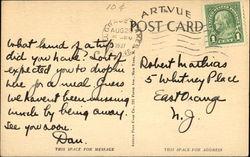 10¢
ART-VUE
POST CARD
AUG
1937
1
What kind of a trip
did you have? Sort of
expected you to drop in
here for a meal. Guess
we haven't been missing
much by being away.
See you soon.
Dan.
Robert Mathias
5 Whitney Place
East Orange
N.J.
THIS SPACE FOR MESSAGE
THIS SPACE FOR ADDRESS